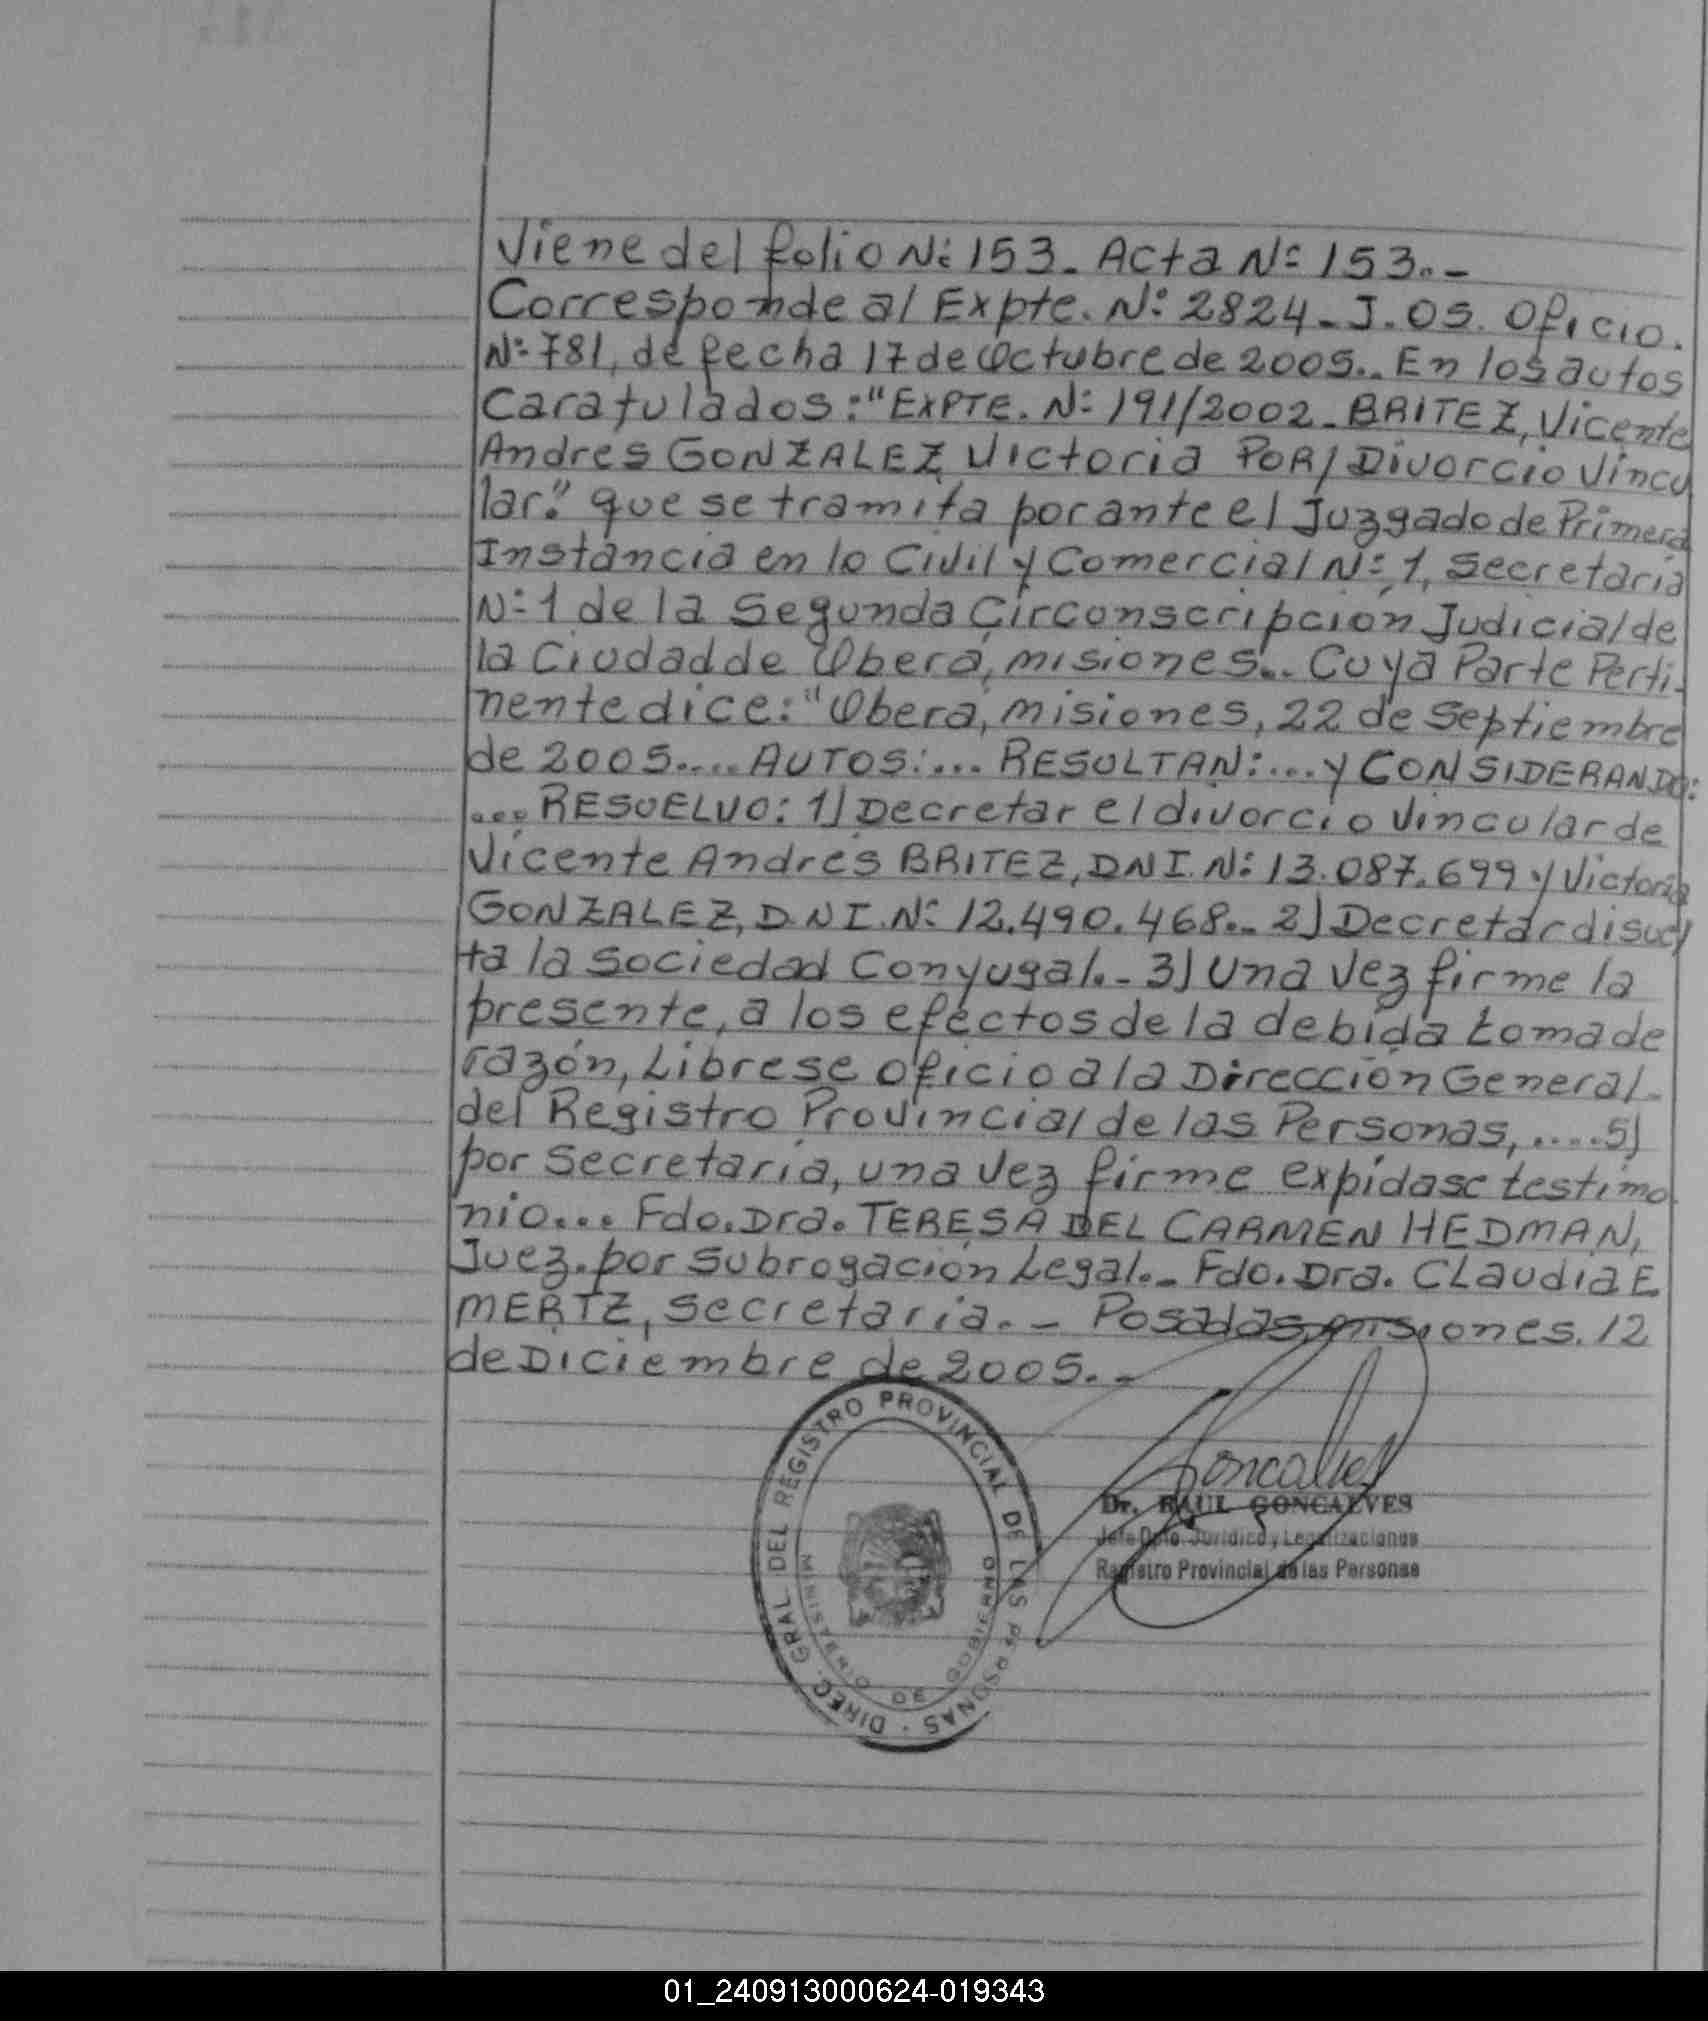 Viene del folio Nº 153. Acta Nº 153.-
Corresponde al Expte. Nº 2824-J.05. Oficio.
Nº 781, de fecha 17 de Octubre de 2005.- En los autos
Caratulados: "EXPTE. Nº 191/2002- BRITEZ, Vicente
Andres GONZALEZ Victoria POR/ Divorcio Vincu
lar." que se tramita por ante el Juzgado de Primera
Instancia en lo Civil y Comercial Nº 1, Secretaria
Nº 1 de la Segunda Circonscripción Judicial de
la Ciudad de Oberá, misiones.- Cuya Parte Perti-
nente dice: "Oberá, misiones, 22 de Septiembre
de 2005.... AUTOS:... RESULTAN:... y CONSIDERANDO:
... RESUELVO: 1) Decretar el divorcio vincular de
Vicente Andrés BRITEZ, DNI. Nº 13.087.699 y Victoria
GONZALEZ, D.N.I. Nº 12.490.468.- 2) Decretar disuel
ta la sociedad Conyugal.- 3) Una vez firme la
presente, a los efectos de la debida toma de
razón, Librese oficio a la Dirección General-
del Registro Provincial de las Personas, .... 5)
por Secretaría, una vez firme expídase testimo
nio... Fdo. Dra. TERESA DEL CARMEN HEDMAN,
Juez. por Subrogación Legal.- Fdo. Dra. Claudia E
MERTZ, Secretaria.- Posadas, misiones. 12
de Diciembre de 2005.-
DIREC. GRAL DEL REGISTRO PROVINCIAL DE LAS PERSONAS
MINISTERIO DE GOBIERNO
Goncalves
Dr. RAUL GONCALVES
Jefe Dpto. Jurídico y Legalizaciones
Registro Provincial de las Personas
01_240913000624-019343